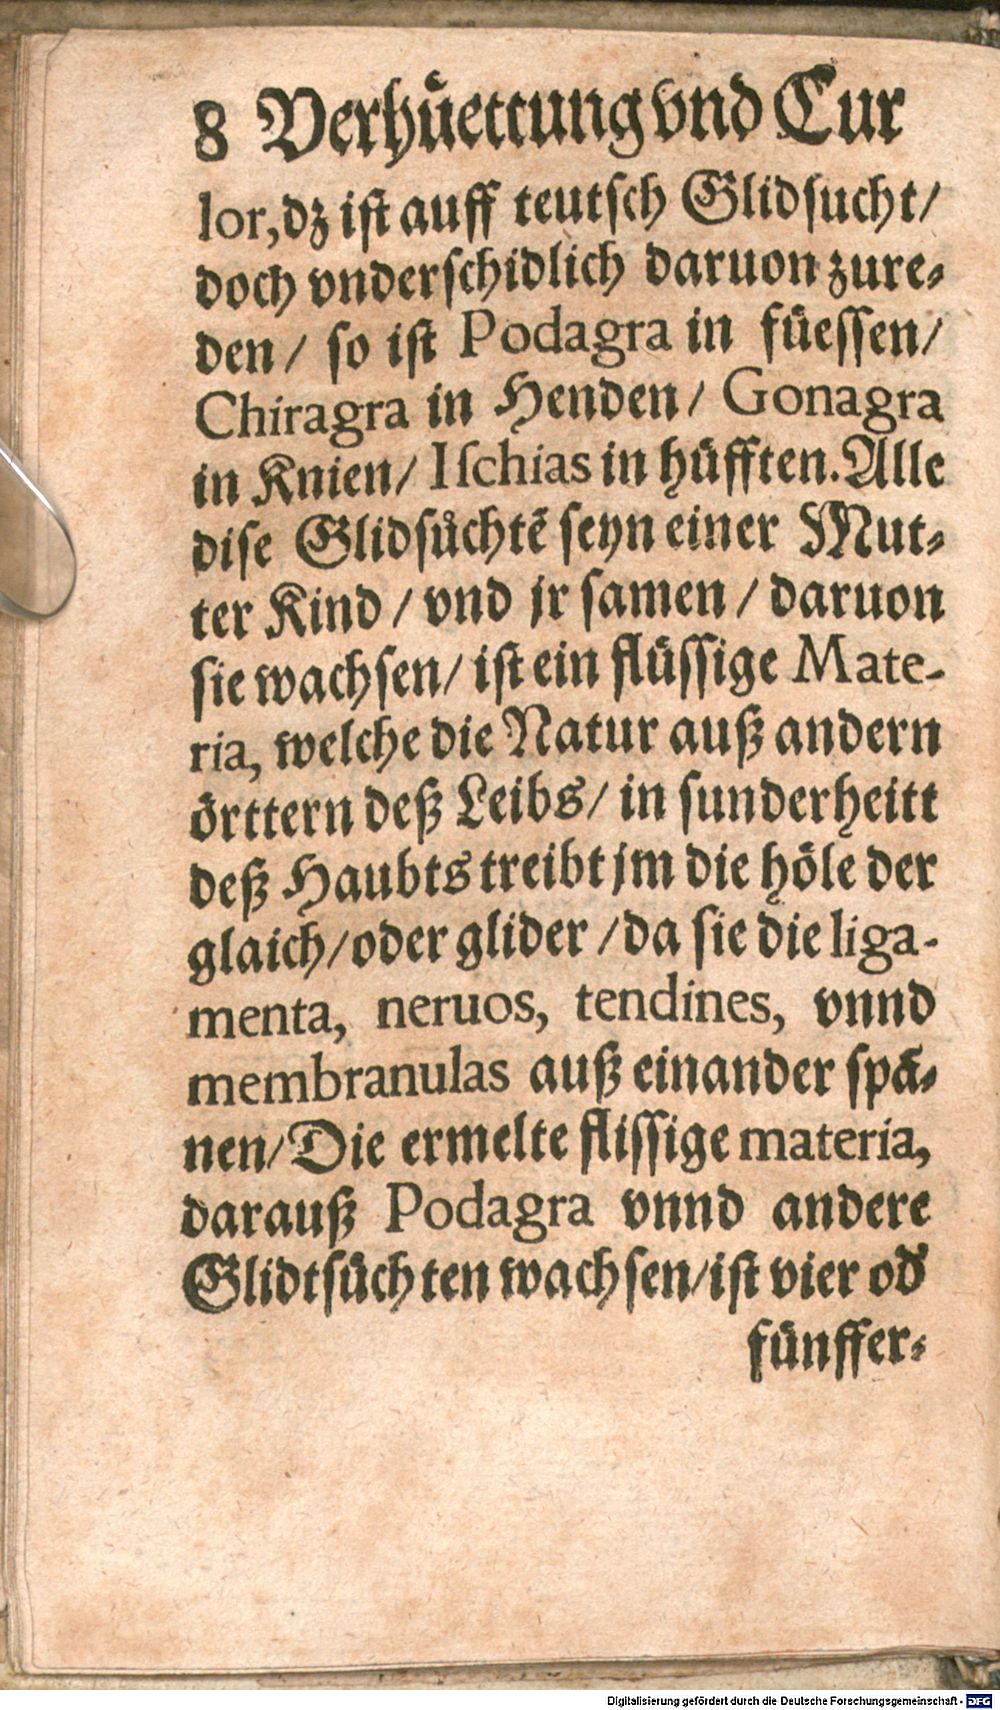 8 Verhuͤettung vnd Cur
lor, dz ist auff teutsch Glidsucht/
doch vnderschidlich daruon zure⸗
den/ so ist Podagra in fuͤessen/
Chiragra in Henden/ Gonagra
in Knien/ Ischias in huͤfften. Alle
dise Glidsuͤchtẽ seyn einer Mut⸗
ter Kind/ vnd jr samen/ daruon
sie wachsen/ ist ein fluͤssige Mate-
ria, welche die Natur auß andern
oͤrttern deß Leibs/ in sunderheitt
deß Haubts treibt jm die hoͤle der
glaich/ oder glider/ da sie die liga-
menta, neruos, tendines, vnnd
membranulas auß einander spã⸗
nen/ Die ermelte flissige materia,
darauß Podagra vnnd andere
Glidtsuͤchten wachsen/ ist vier od'
fuͤnffer⸗
Digitalisierung gefördert durch die Deutsche Forschungsgemeinschaft - DFG